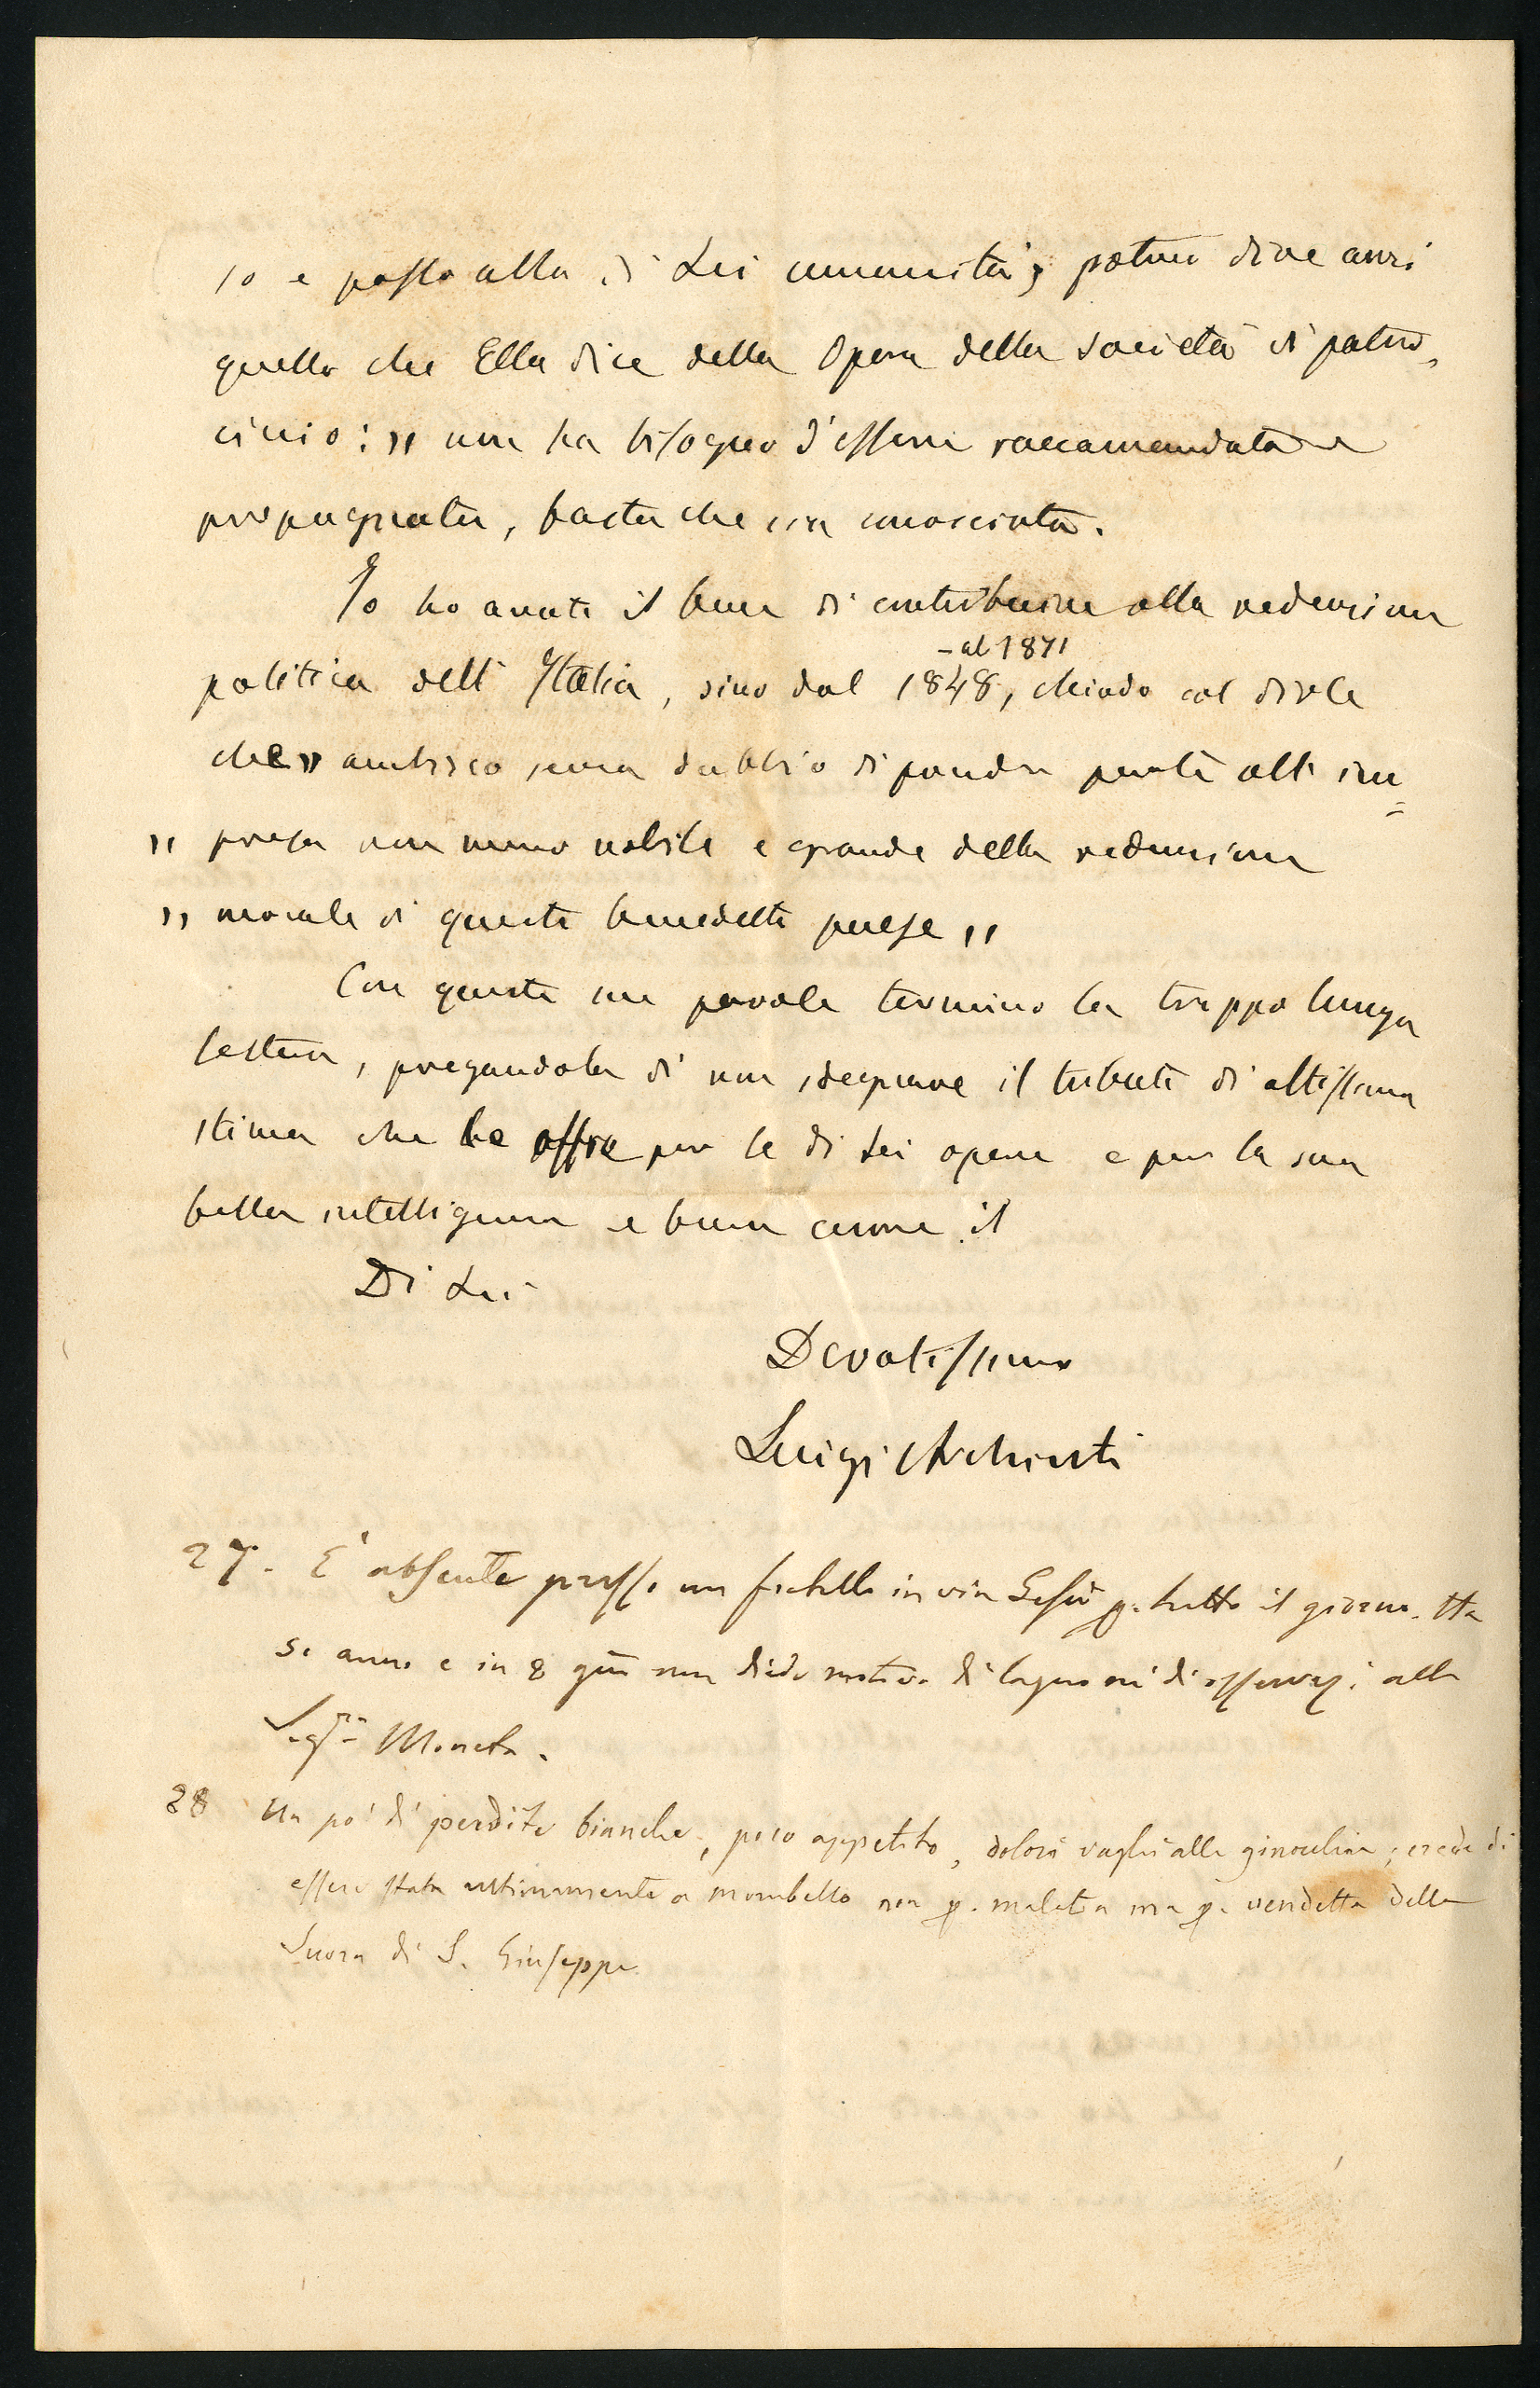 so e posto alla di Lei umanità; potrei dire anzi
quello che Ella dice della Opera della società di patro-
cinio: „ non ha bisogno d'essere raccomandata e
propugnata, basta che sia conosciuta.
Io ho avuto il bene di contribuire alla redenzione
- al 1871
politica dell'Italia, sino dal 1848, chiudo col dirle
che „ ambisco senza dubbio di prender parte all'im=
„ presa non meno nobile e grande della redenzione
„ morale di questo benedetto paese „
Con queste sue parole termino la troppo lunga
lettera, pregandola di non sdegnare il tributo di altissima
stima che le offre per le di Lei opere e per la sua
bella intelligenza e buon cuore il
Di Lei
Devotissimo
Luigi Archinti
27. E' absente presso un fratello in via Gesù p. tutto il giorno. Ha
anni e in 8 gni non diede motivo di lagno nè di osservaz. alla
Sigra Moneta.
28 Un po' di perdite bianche, poco appetito, dolori vaghi alle ginocchia; crede di
essere stata ultimamente a Mombello non p. malatia ma p. vendetta della
Suora di S. Giuseppe